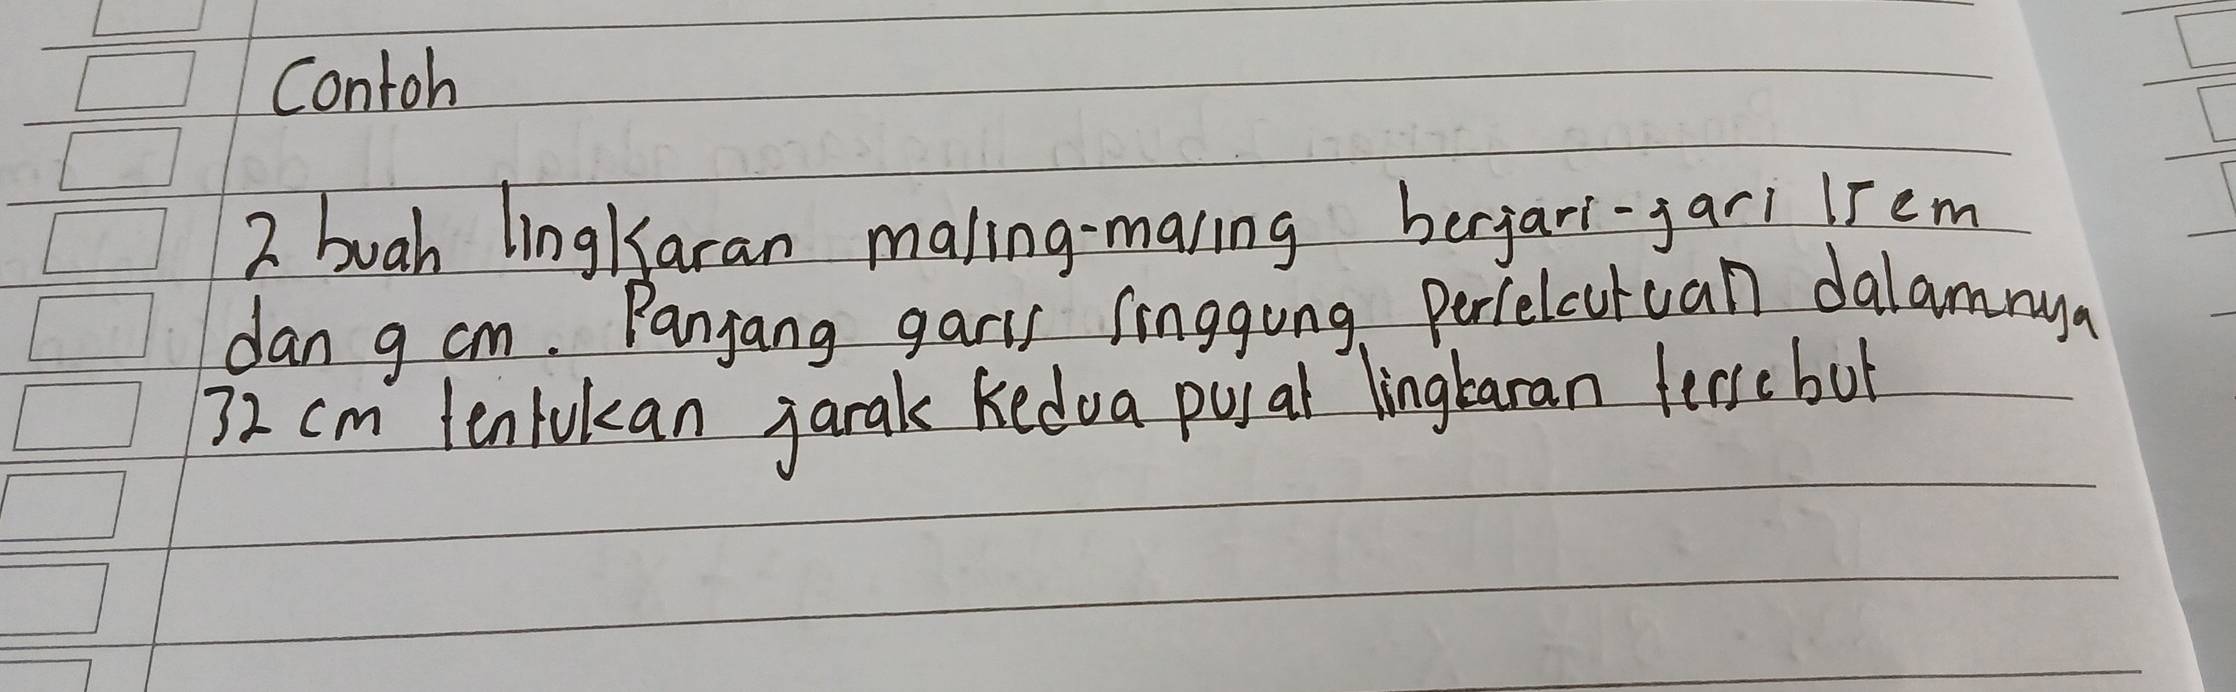 Contoh
2 buah lingkaran masing-masing berjari-jari 15 cm
dan 9 cm. Panjang garis singgung persekutuan dalamnya
32 cm tentukan jarak kedua pusat lingkaran tersebut